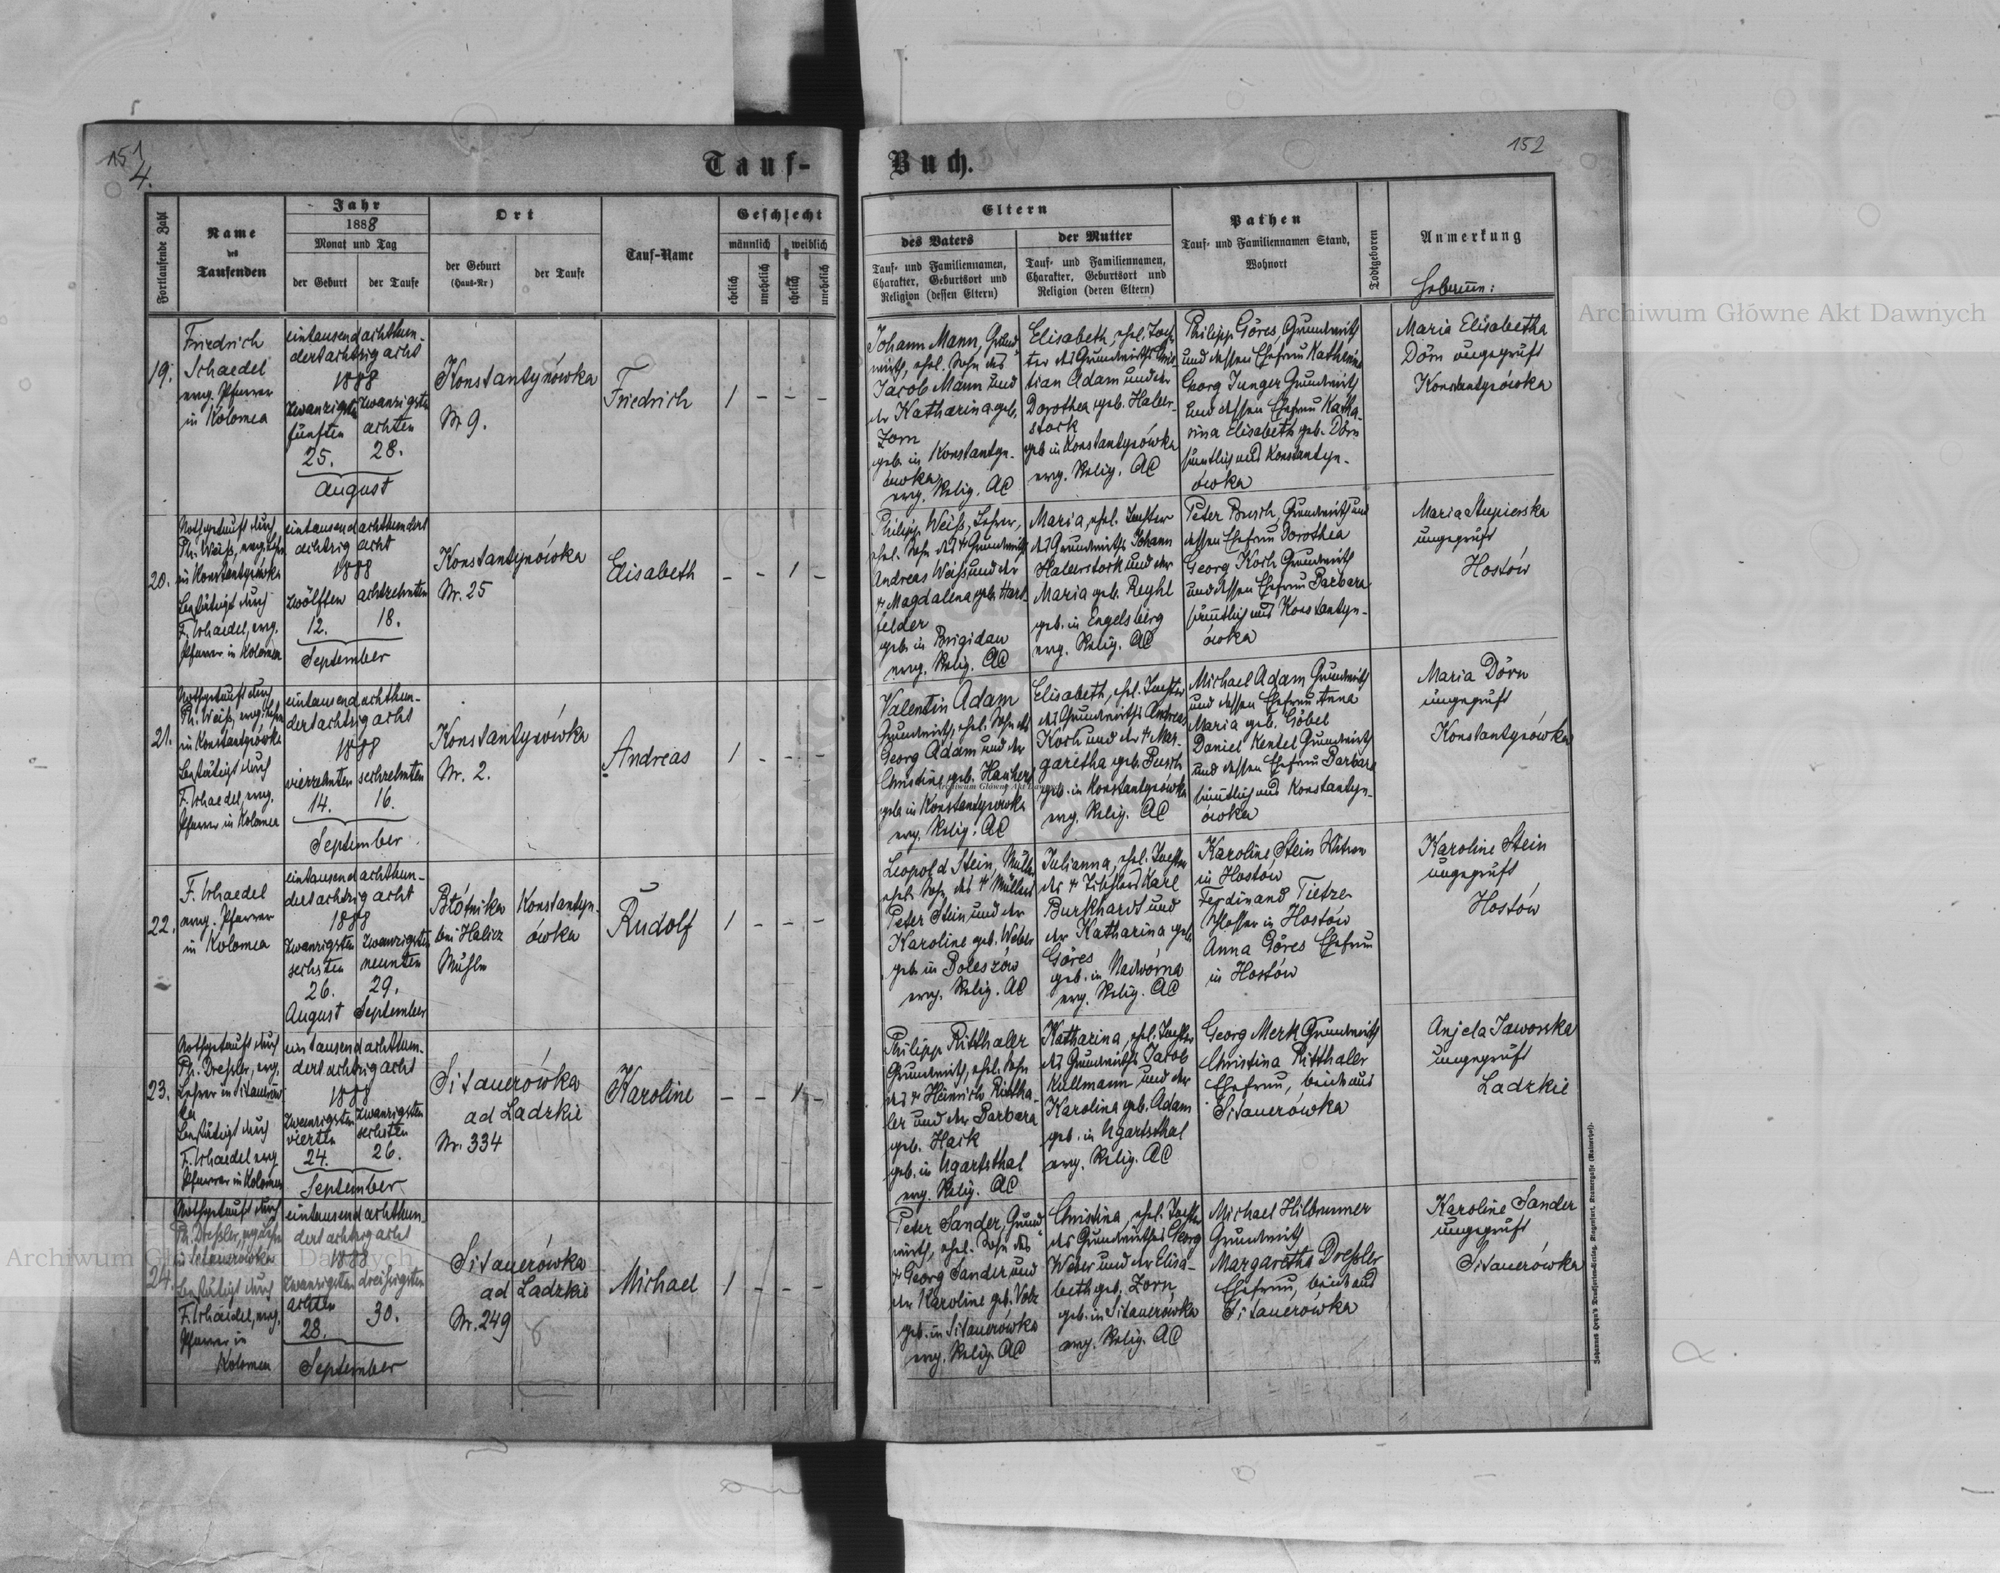 151
4.
Tauf-
Fortlaufende Zahl
Name
des
Taufenden
Jahr
1888
Monat und Tag
der Geburt
der Taufe
Ort
der Geburt
(Haus-Nr)
der Taufe
Tauf-Name
Geschlecht
männlich
weiblich
ehelich
unehelich
ehelich
unehelich
19.
Friedrich
Schaedel
evng. Pfarrer
in Kolomea
eintausendachthun-
dertachtzig acht
1888
zwanzigsten zwanzigsten
fünften achten
25. 28.
August
Konstantynówka
Nr 9.
Friedrich
1 - - -
20.
Nothgetauft durch
Ph. Weiß, evng. Lehrer
in Konstantynówka
Bestätigt durch
F. Schaedel, evng.
Pfarrer in Kolomea
eintausendachthundert
achtzig acht
1888
zwölften achtzehnten
12. 18.
September
Konstantynówka
Nr. 25
Elisabeth
- - 1 -
21.
Nothgetauft durch
Ph. Weiß, evng. Lehrer
in Konstantynówka
Bestätigt durch
F. Schaedel, evng.
Pfarrer in Kolomea
eintausendachthun-
dertachtzig acht
1888
vierzehnten sechzehnten
14. 16.
September
Konstantynówka
Nr. 2.
Andreas
1 - - -
22.
F. Schaedel
evng. Pfarrer
in Kolomea
eintausendachthun-
dertachtzig acht
1888
zwanzigsten zwanzigsten
sechsten neunten
26. 29.
August September
Błótnika
bei Halicz
Mühle
Konstantyn-
ówka
Rudolf
1 - - -
23.
Nothgetauft durch
Ph. Dreßler, evg.
Lehrer in Sitauerów
ka
Bestätigt durch
F. Schaedel evng
Pfarrer in Kolomea
eintausendachthun-
dertachtzig acht
1888
zwanzigsten zwanzigsten
vierten sechsten
24. 26.
September
Sitauerówka
ad Ladzkie
Nr. 334
Karoline
- - 1 -
24.
Nothgetauft durch
Ph. Dreßler, evg. Lehrer
in Sitauerówka
Bestätigt durch
F. Schaedel, evng.
Pfarrer in
Kolomea
eintausendachthun-
dertachtzig acht
1888
zwanzigsten dreißigsten
achten
28. 30.
September
Sitauerówka
ad Ladzkie
Nr. 249
Michael
1 - - -
152
Buch.
Eltern
des Vaters
Tauf- und Familiennamen,
Charakter, Geburtsort und
Religion (dessen Eltern)
der Mutter
Tauf- und Familiennamen,
Charakter, Geburtsort und
Religion (deren Eltern)
Pathen
Tauf- und Familiennamen Stand,
Wohnort
Todtgeboren
Anmerkung
Hebamme:
Johann Mann, Grund-
wirth, ehel. Sohn des
Jacob Mann und
der Katharina geb.
Zorn
geb. in Konstantyn-
ówka
evng. Relig. AC
Elisabeth, ehel. Toch-
ter des Grundwirths Chris-
tian Adam und der
Dorothea geb. Haber-
stock
geb in Konstantynówka
evng. Relig. AC
Philipp Göres Grundwirth
und dessen Ehefrau Katharina
Georg Junger Grundwirth
und dessen Ehefrau Katha-
rina Elisabeth geb. Dörn
sämtlich aus Konstantyn-
ówka
Maria Elisabetha
Dörn ungeprüft
Konstantynówka
Philipp Weiß, Lehrer,
ehel. Sohn des + Grundwirths
Andreas Weiß und der
+ Magdalena geb. Hart-
felder
geb. in Brigidau
evng. Relig. AC
Maria, ehel. Tochter
des Grundwirths Johann
Haberstock und der
Maria geb. Reyhl
geb. in Engelsberg
evng. Relig. AC
Peter Busch, Grundwirth und
dessen Ehefrau Dorothea
Georg Koch Grundwirth
und dessen Ehefrau Barbara
sämtlich aus Konstantyn-
ówka
Maria Stupierska
ungeprüft
Hostów
Valentin Adam
Grundwirth, ehel. Sohn des
Georg Adam und der
Christine geb. Haukert
geb in Konstantynówka
evng. Relig. AC
Elisabeth, ehel. Tochter
des Grundwirths Andreas
Koch und der + Mar-
garetha geb. Busch
geb. in Konstantynówka
evng. Relig. AC
Michael Adam Grundwirth
und dessen Ehefrau Anna
Maria geb. Göbel
Daniel Kentel Grundwirth
und dessen Ehefrau Barbara
sämtlich aus Konstantyn-
ówka
Maria Dörn
ungeprüft
Konstantynówka
Leopold Stein, Müller
ehel. Sohn des + Müllers
Peter Stein und der
Karoline geb. Weber
geb in Boleszów
evng. Relig. AC
Julianna, ehel. Tochter
des + Tischlers Karl
Burkhardt und
der Katharina geb.
Göres
geb. in Nadwórna
evng. Relig. AC
Karoline Stein Witwe
in Hostów
Ferdinand Tietze
Schlosser in Hostów
Anna Göres Ehefrau
in Hostów
Karoline Stein
ungeprüft
Hostów
Philipp Ritthaler
Grundwirth, ehel. Sohn
des + Heinrich Rittha-
ler und der Barbara
geb. Hack
geb. in Ugartsthal
evng. Relig. AC
Katharina, ehel. Tochter
des Grundwirths Jacob
Kullmann und der
Karolina geb. Adam
geb. in Ugartsthal
evng. Relig. AC
Georg Merk Grundwirth
Christina Ritthaler
Ehefrau, beide aus
Sitauerówka
Anjela Jaworska
ungeprüft
Ladzkie
Peter Sander, Grund-
wirth, ehel. Sohn des
+ Georg Sander und
der Karoline geb. Volz
geb. in Sitauerówka
evng. Relig. AC
Christina, ehel. Tochter
des Grundwirthes Georg
Weber und der Elisa-
beth geb. Zorn
geb. in Sitauerówka
evng. Relig. AC
Michael Hilbrunner
Grundwirth
Margaretha Dreßler
Ehefrau, beide aus
Sitauerówka
Karoline Sander
ungeprüft
Sitauerówka
Archiwum Główne Akt Dawnych
Archiwum Główne Akt Dawnych
Archiwum Główne Akt Dawnych